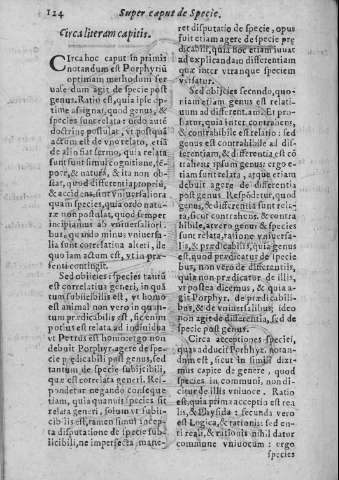 124
Super caput de Specie.
Circa literam capitis.
CIrca hoc caput in primis
notandum est Porphyriũ
optimam methodum ser
uasse dum agit de specie post
genus. Ratio est, quia ipse op-
time assignat, quod genus, &
species sunt relata: ordo autẽ
doctrinæ postulat, vt postquã
actum est de vno relato, etiã
de alio fiat sermo, quia relata
sunt simul cognitione, tẽ-
pore, & natura, & ita non ob-
stat, quod differentia, propriũ,
& accidens, sint vniuersaliora
quam species, quia ordo natu-
ræ non postulat, quod semper
incipiamus ab vniuersaliori-
bus, quando minus vniuersa-
lia sunt correlatiua alteri, de
quo iam actum est, vt in præ-
senti contingit.
Sed obijcies: species tantũ
est correlatiua generi, in quã
tum subijcibilis est, vt homo
est animal non vero in quan-
tum prædicabilis est, sic enim
potius est relata ad indiuidua
vt Petrus est homo: ergo non
debuit Porphyr. agere de spe-
cie prædicabili post genus, sed
tantum de specie subijcibili,
quæ est correlata generi. Res-
pondetur negando conse-
quentiam, quia quamuis species sit
relata generi, solum vt subij-
cibilis est, tamen simul incep-
ta disputatione de specie sub-
ijcibili, ne imperfecta mane-
ret disputatio de specie, opus
fuit etiam agere de specie præ
dicabili, quia hoc etiam iuuat
ad explicandam differentiam
quæ inter vtranque speciem
versatur.
Sed obijcies secundo, quo-
niam etiam genus est relati-
uum ad differentiam. Et pro-
batur, quia inter contrahens,
& contrahibile est relatio: sed
genus est contrahibile ad dif-
ferentiam, & differentia est cõ
trahens ipsum genus: ergo et-
iam sunt relata, atque etiam
debuit agere de differentia
post genus. Respõdetur, quod
genus, & differentia sunt rela-
ta, sicut contrahens, & contra
hibile, at vero genus & species
sunt relata, ratione vniuersa-
lis, & prædicabilis, quia genus
est, quod prædicatur de specie
bus, non vero de differentiis,
quia non prædicatur de illis,
vt postea dicemus, & quia a-
git Porphyr. de prædicabili-
bus, & de vniuersalibus; ideo
non agit de differentia, sed de
specie post genus.
Circa acceptiones speciei,
quas adducit Porphyr. notan-
dum est, sicut in simili dixi-
mus capite de genere, quod
species in communi, non di-
citur de illis vniuoce. Ratio
est, quia prima acceptio est rea
lis, & Physica: secunda vero
est Logica, & rationis: sed en-
ti reali, & rationis nihil dator
commune vniuocum: ergo
species